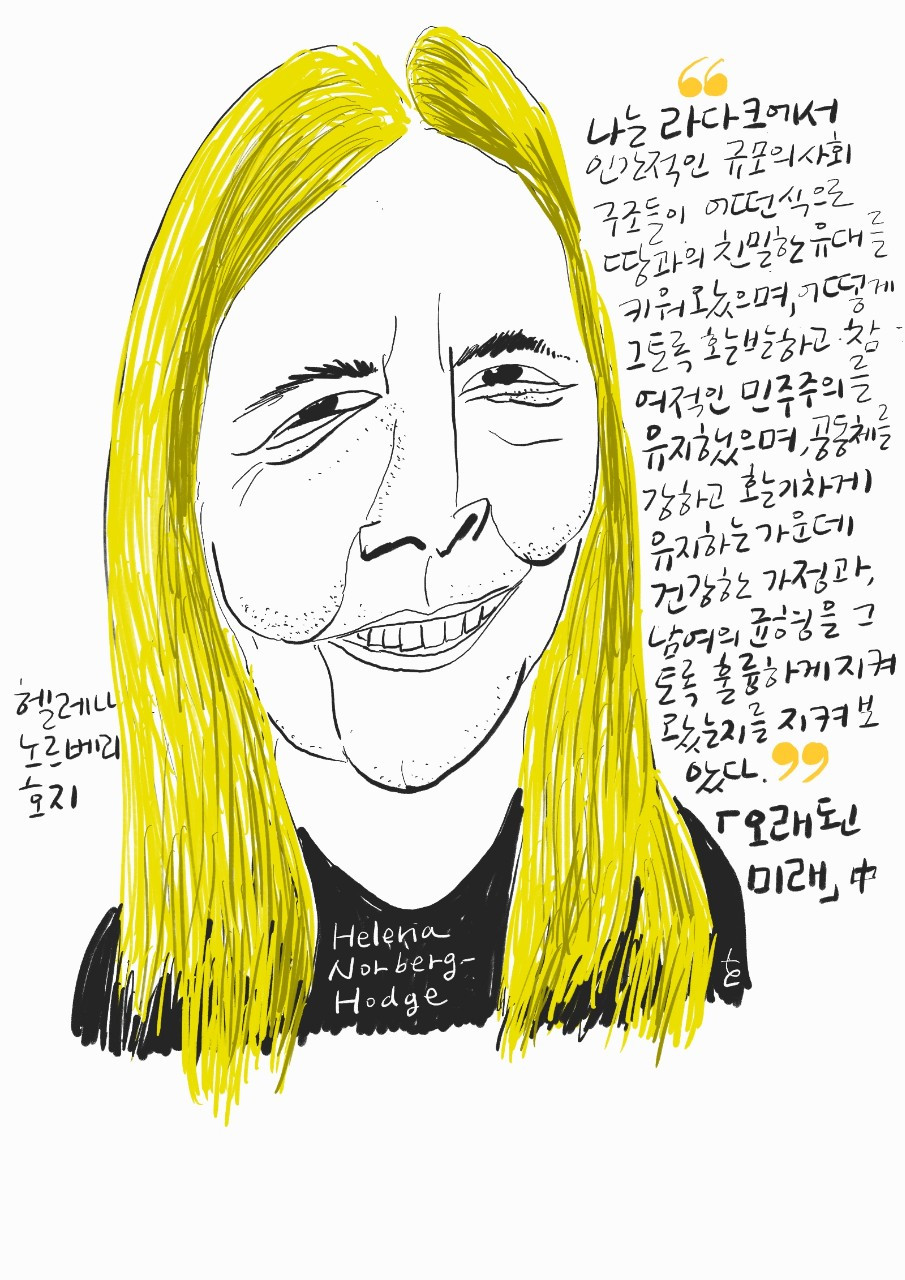 나는 라다크에서
인간적인 규모의 사회
구조들이 어떤식으로
땅과의 친밀한 유대를
키워 왔으며, 어떻게
그토록 활발하고 참
여적인 민주주의를
유지했으며, 공동체를
강하고 활기차게
유지하는 가운데
건강한 가정과,
남여의 균형을 그
토록 훌륭하게 지켜
왔는지를 지켜 보
았다.
「오래된
미래」中
헬레나
노르베리
호지
Helena
Norberg-
Hodge